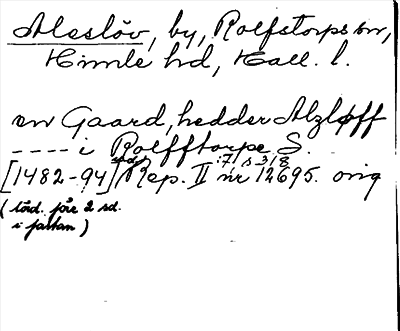 Alaslöv, by, Rolfstorps sn,
Himle hd, Hall. l.
en Gaard, hedder Alzløff
---- i Rolfftorpe S.
:7/ s 318
[1482-94] Rep. II nr 12695. orig
(lörd. före 2 sd.
i fastan)